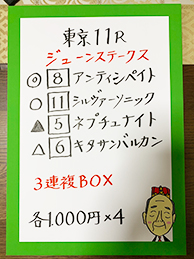 東京11R
ジューンステークス
◎ 8 アンティシペイト
○ 11 シルヴァーソニック
▲ 5 ネプチュナイト
△ 6 キタサンバルカン
3連複BOX
各1,000円×4